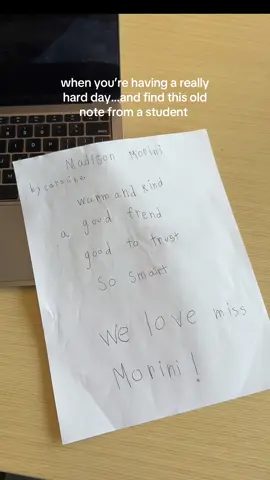 when you're having a really
hard day...and find this old
note from a student
Madison Morini
by caroline
warm and kind
a good frend
good to trust
so smart
we love miss
Morini!